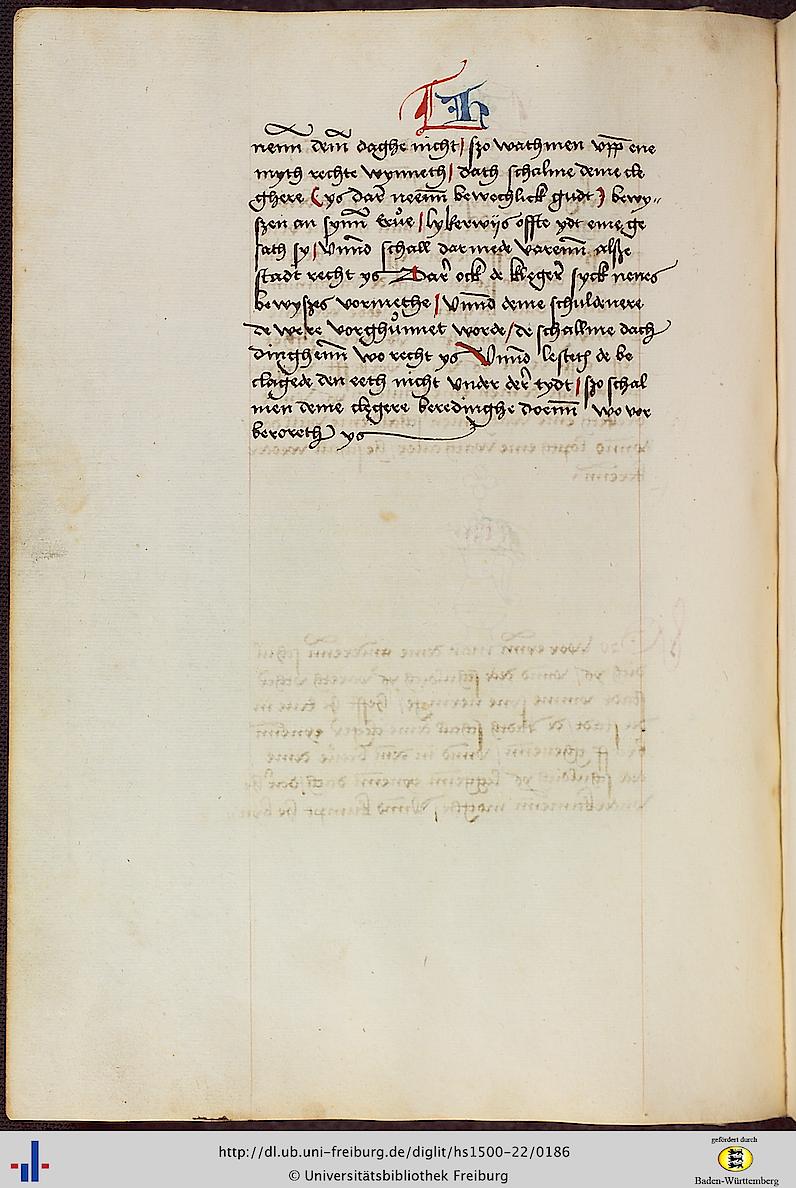 Th
nenn dem daghe nicht / szo wathmen vpp ene
myth rechte wynneth / dath schalme deme cle
ghere ( ys dar neenn bewechlick gudt ) bewy-
szen an synn erue / lykerwijs offte ydt eme ge
sath sy / vnnd schall darmede varenn alsze
stadt recht ys Dar ock de kleger syck nenes
bewyszes vormethe / vnnd deme schuldenere
de were vorghunnet worde / de schallme dach
dinghenn wo recht ys Vnnd lesteth de be
clagede den eeth nicht vnder der tydt / szo schal
men deme clegere beredinghe doenn wo vor
beroreth ys
http://dl.ub.uni-freiburg.de/diglit/hs1500-22/0186
© Universitätsbibliothek Freiburg
gefördert durch
Baden-Württemberg